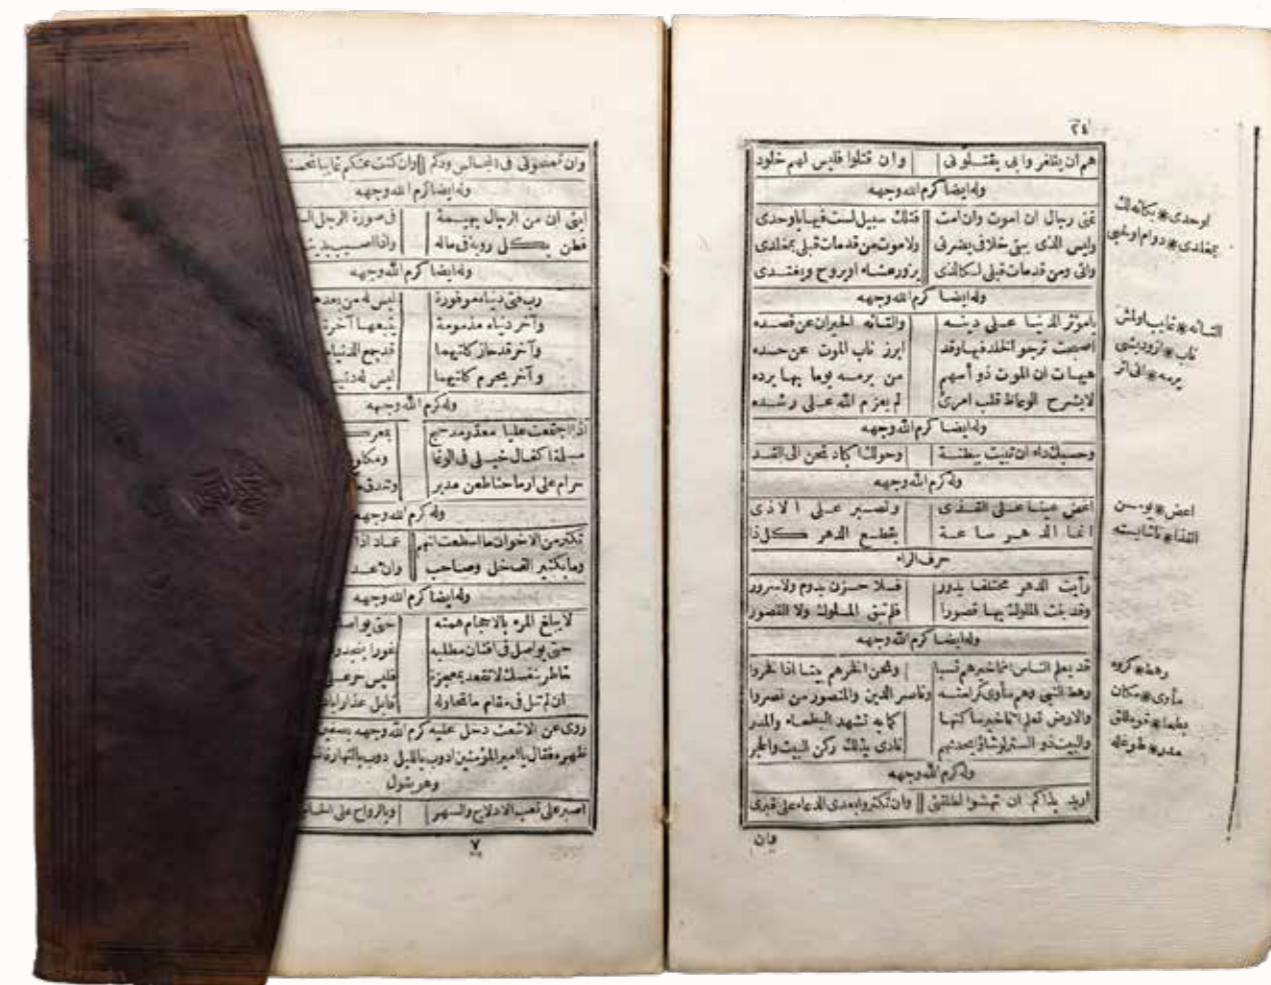 ٢٤
هم ان يظفروا بي يقتلوني وان قتلوا فليس لهم خلود
وله ايضا كرم الله وجهه
تمنى رجال ان اموت وان امت فتلك سبيل لست فيها باوحدى
وليس الذي يبقى خلافى يضرنى ولا موت من قد مات قبلى بمخلدى
وانى ومن قد مات قبلى لكالذى يزور عشاء او يروح ويغتدى
وله ايضا كرم الله وجهه
يا مؤثر الدنيا على دينه والتائه الحيران عن قصده
اصبحت ترجو الخلد فيها وقد ابرز ناب الموت عن حده
هيهات ان الموت ذو أسهم من يرمه يوما بها يرده
لا يشرح الوعاظ قلب امرئ لم يعزم الله على رشده
وله ايضا كرم الله وجهه
وحسبك داء ان تبيت ببطنة وحولك اكباد تحن الى القد
وله كرم الله وجهه
اغض عينا على القذى وتصبر على الاذى
انما الدهر ساعة يقطع الدهر كل ذا
حرف الراء
رأيت الدهر مختلفا يدور فلا حزن يدوم ولا سرور
وقد بنت الملوك بها قصورا فلم تبق الملوك ولا القصور
وله ايضا كرم الله وجهه
قد يعلم الناس انا خيرهم نسبا ونحن افخرهم بيتا اذا فخروا
رهط النبى وهم مأوى كرامته وناصر الدين والمنصور من نصروا
والارض تعلم انا خير ساكنها كما به تشهد البطحاء والمدر
والبيت ذو الستر لو شاؤا يحدثهم نادى بذلك ركن البيت والحجر
وله كرم الله وجهه
اريد بذاكم ان تهشوا لطلقتى وان تكثروا بعدى الدعاء على قبرى
وان
اوحدى يكانه لك
بمخلدى دوام اوليجى
التائه غايب اولمش
ناب ازوديشى
القذا ناشايسته
رهط كروه
مأوى مكان
وان تمنحونى فى المجالس ودكم وان كنت عنكم غايبا
وله ايضا كرم الله وجهه
ابنى ان من الرجال بهيمة فى صورة الرجل
فطن بكل رزية فى ماله واذا اصيب بدينه
وله ايضا كرم الله وجهه
رب فتى دنياه موفورة ليس له من بعدها
وآخر دنياه مذمومة يتبعها آخرة
وآخر قد حاز كلتيهما قد جمع الدنيا
وآخر يحرم كلتيهما ليس له
وله كرم الله وجهه
اذا اجتمعت عليا معد ومذحج
مسلمة اكفال خيلى فى الوغا
حرام على ارماحنا طعن مدبر وتندق
وله كرم الله وجهه
تكثر من الاخوان ما اسطعت انهم عماد اذا
وما بكثير الف خل وصاحب وان عد
وله ايضا كرم الله وجهه
لا يبلغ المرء بالاحجام همته حتى
حتى يواصل فى افنان مطلبه غورا
خاطر بنفسك لا تقعد بمعجزة فليس حر على
ان لم تنل فى مقام ما تحاوله
روى عن الاشعث دخل عليه كرم الله وجهه بصفين
ظهيرة فقال يا امير المؤمنين ادوب بالليل دوب بالنهار
وهو يقول
اصبر على تعب الادلاج والسهر وبالرواح على
٧